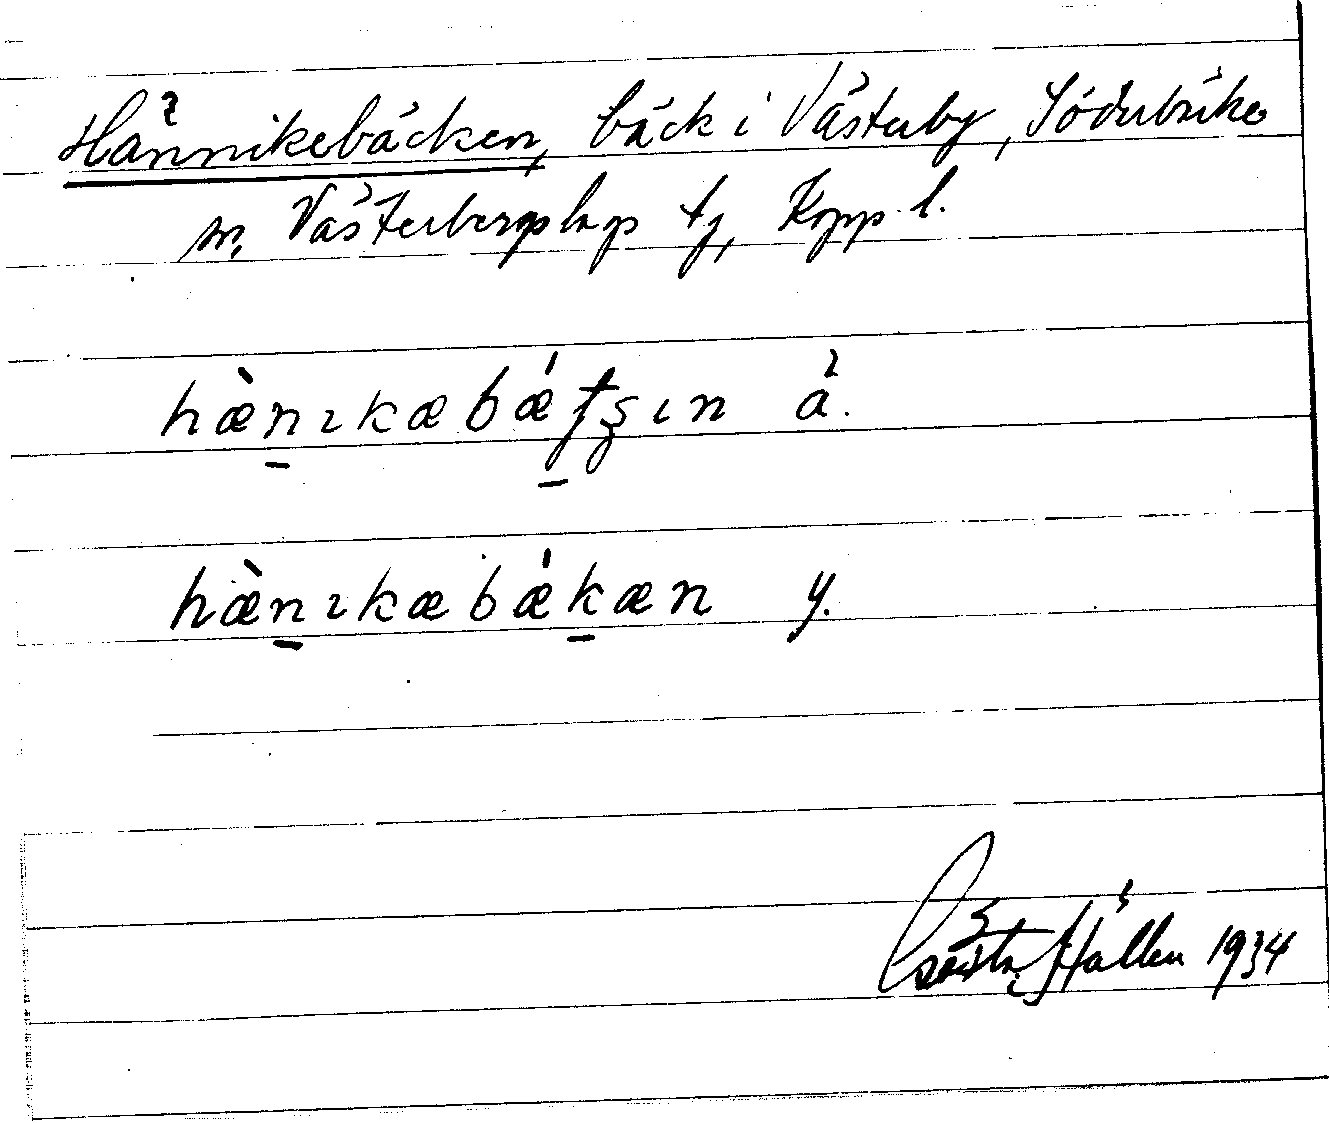 Hännikebäcken, bäck i Västerby, Söderbärke
sn, Västerbergslags tg, Kopp. l.
hæ̀n̠ıkæbǽꞙʂın ä.
hæ̀n̠ıkæbǽk̠æn y.
Gösta Hållen 1934